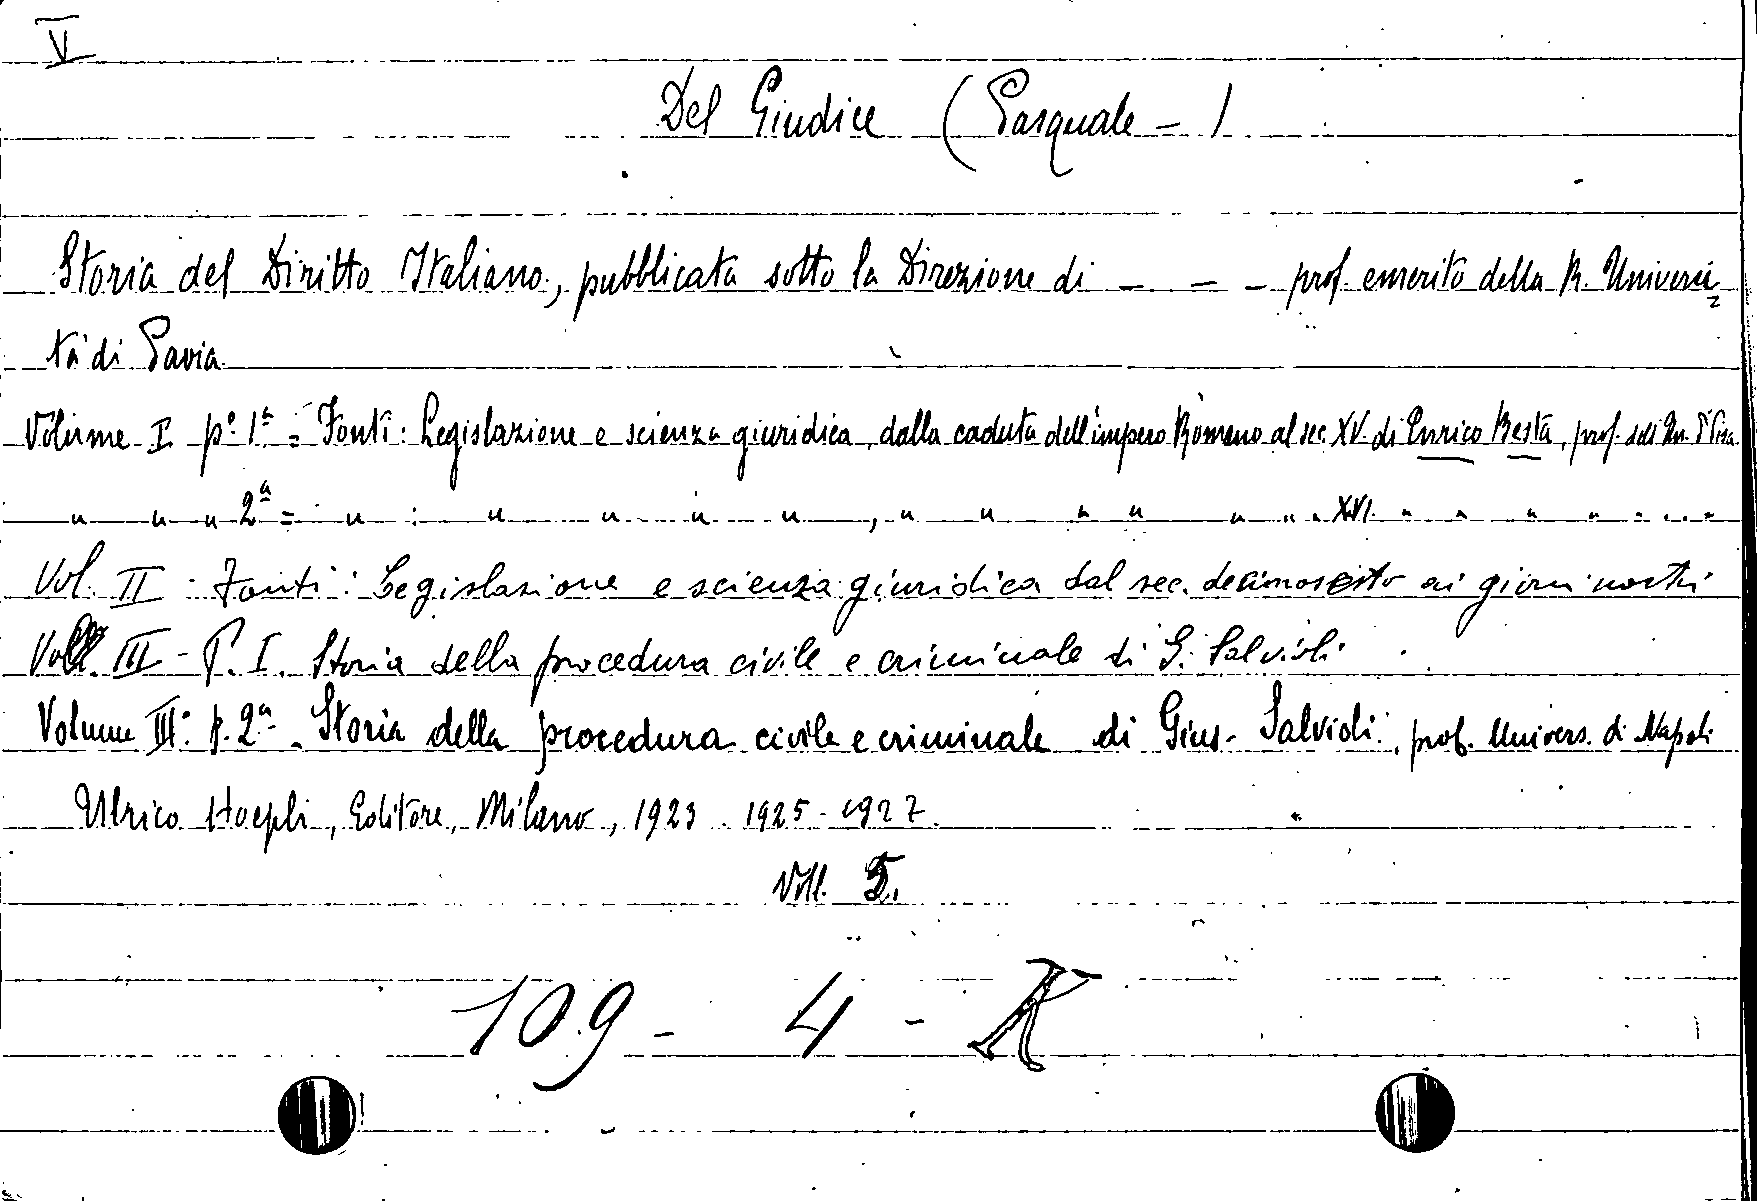 V
Del Giudice (Pasquale - )
Storia del Diritto Italiano, pubblicata sotto la Direzione di - - - prof. emerito della R. Universi=
tà di Pavia
Volume I p.e 1a = Fonti: Legislazione e scienza giuridica, dalla caduta dell'impero Romano al sec. XV. di Enrico Besta, prof. dell'Un. Pisa
" " " 2a = " : " " " " , " " " " " " " XVI. " " " " " " " "
Vol. II - Fonti: Legislazione e scienza giuridica dal sec. decimosesto ai giorni nostri
Vol. III - P. I. Storia della procedura civile e criminale di G. Salvioli.
Volume III° p. 2a - Storia della procedura civile e criminale di Gius. Salvioli, prof. Univers. di Napoli
Ulrico Hoepli, Editore, Milano, 1923 - 1925 - 1927.
Voll. 5.
109 - 4 - K